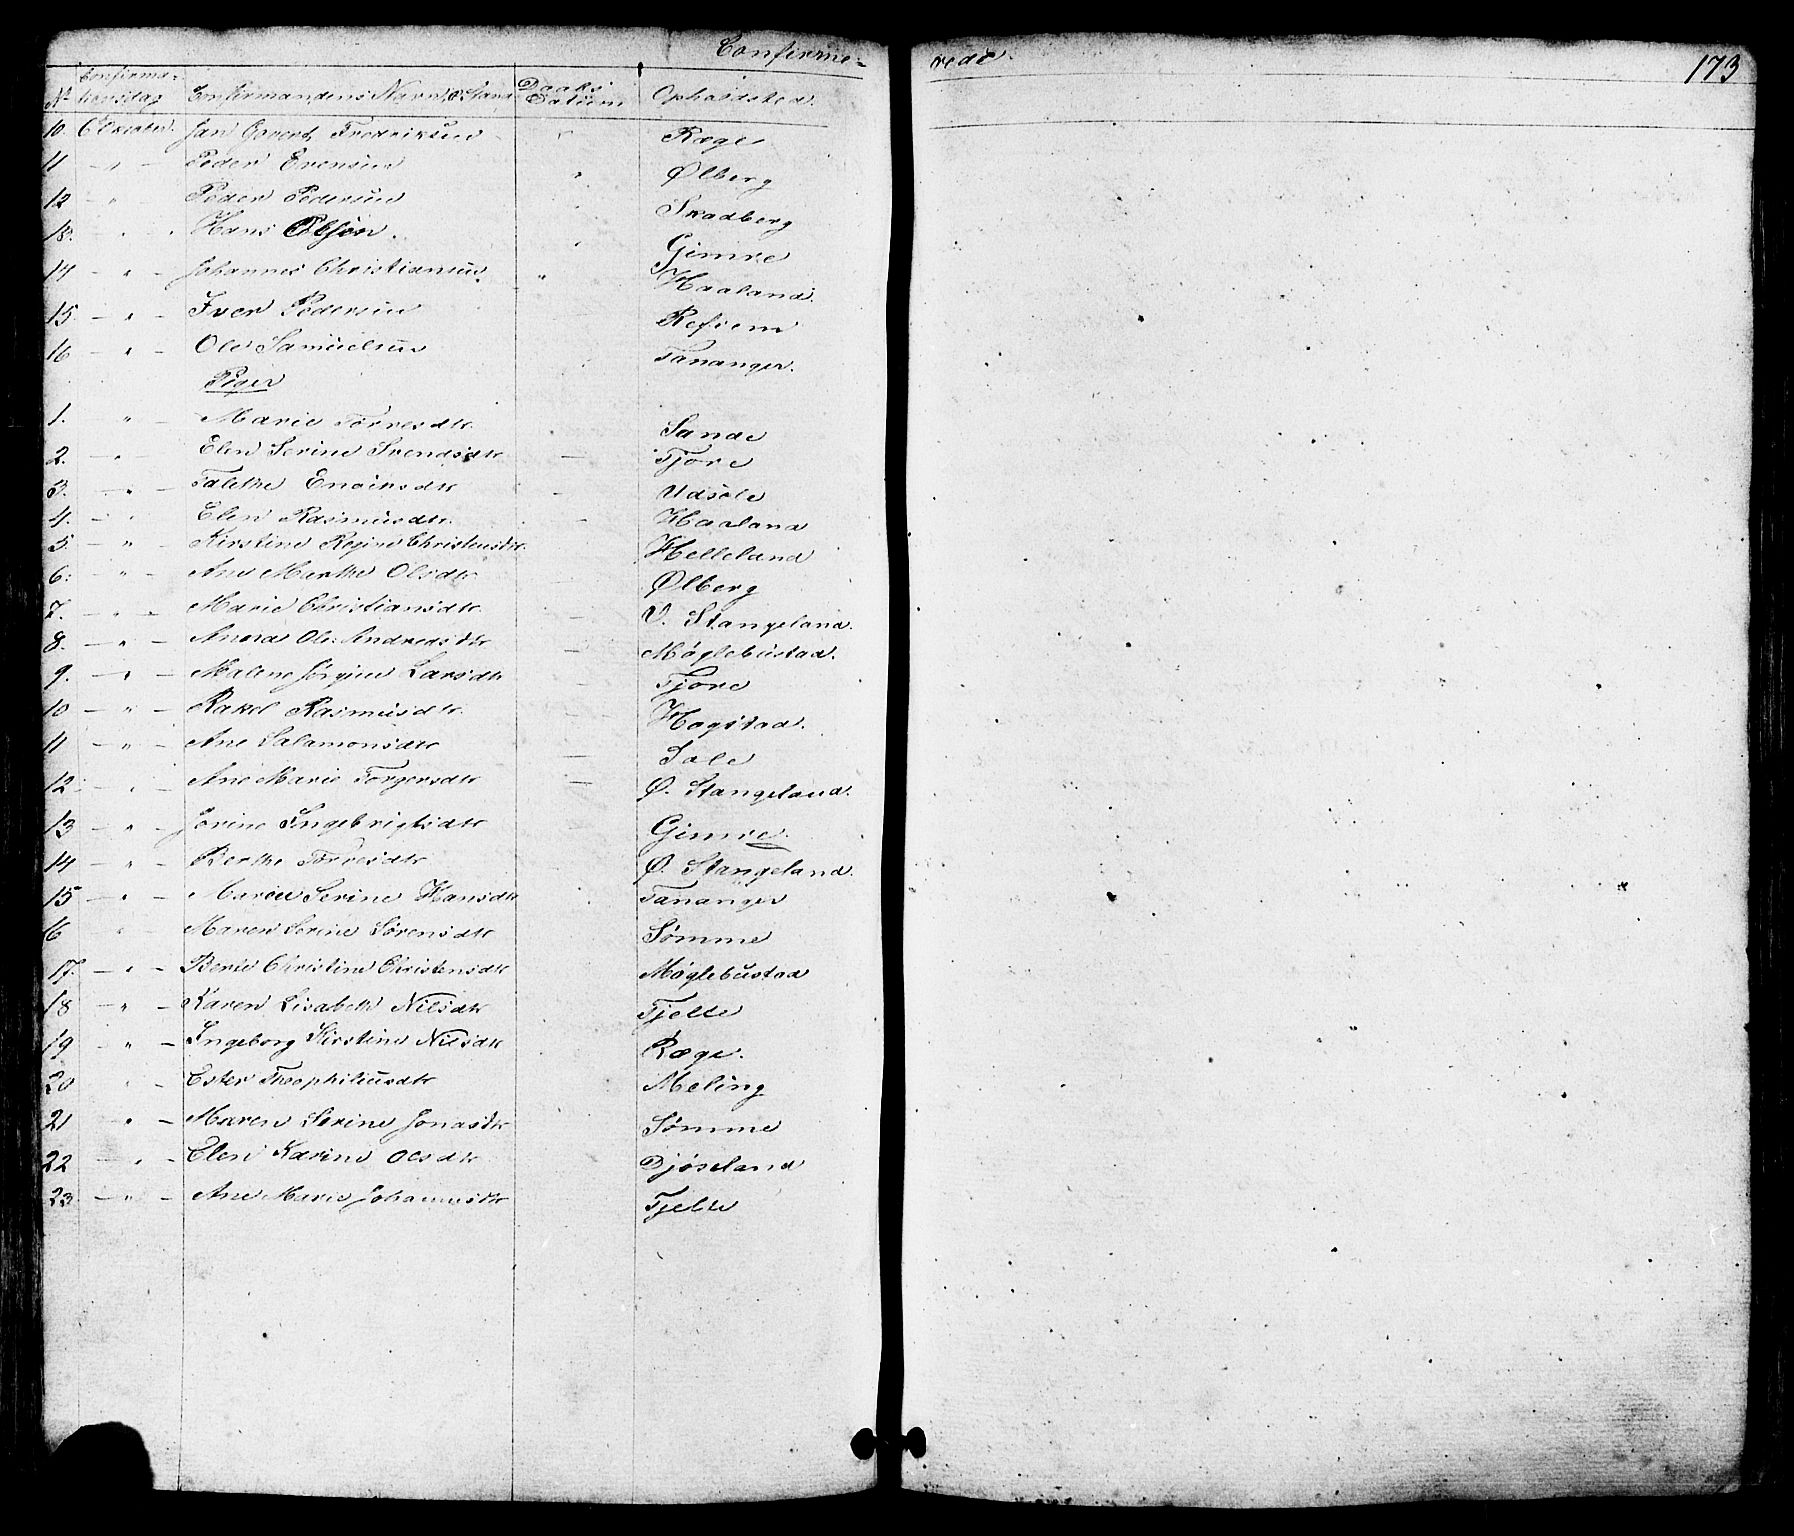 Confirme- rede. 173
No Confirma-tionsdag Confirmandens Navn, o. Stand Daabs Datum Opholdsted.
10. 6 Oktober. Jan Govert Fredriksen " Røge
11 - " - Peder Evensen " Ølberg
12 - " Peder Pedersen " Skadberg
13. " . Hans Polson. " Gimre
14 - " - Johannes Christiansen. " Haaland.
15. - " - Iver Pedersen Refsem
16 - " - Ole Samuelsen Tananger.
Piger
1. " - Marie Torresdtr Sande
2. - " - Elen Serine Svendsdtr - Tjore
3. - " - Talette Endriksdtr - Udsole
4. - " Elen Rasmusdtr. - Haaland
5. - " - Kirstine Regine Christensdtr. Helleland
6. - " - Ane Marthe Olsdtr Ølberg
7. - " - Marie Christiansdtr - V. Stangeland.
8. - " Anna Ole Andreasdtr - Møglebustad.
9. - " - Malene Jørgine Larsdtr - Tjore
10 - " - Rakel Rasmusdtr. - Hogstad.
11 - " - Ane Salamonsdtr - Sole
12 - " - Ane Marie Torgersdtr - Ø. Stangeland.
13 - " - Serine Ingebrigtsdtr Gimre.
14 - " - Berthe Torresdtr Ø. Stangeland.
15 - " - Maren Serine Hansdtr Tananger
6 " - Maren Serine Sørensdtr Sømme
17. - " - Berte Christine Christensdtr Møglebustad
18 - " - Karen Lisabeth Nilsdtr Tjelte
19 - " - Ingeborg Kirstine Nilsdtr Røge.
20 " - Ester Theophiliusdtr Meling
21 " - Maren Serine Jonasdtr Sømme
22 - " - Elen Karine Olsdtr Djøseland
23 - " - Ane Marie Johannesdtr Tjelte